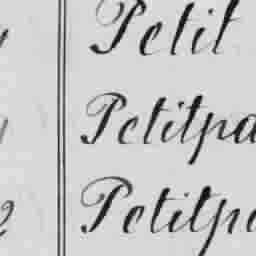 Petit
Petitpa
2 Petitpe